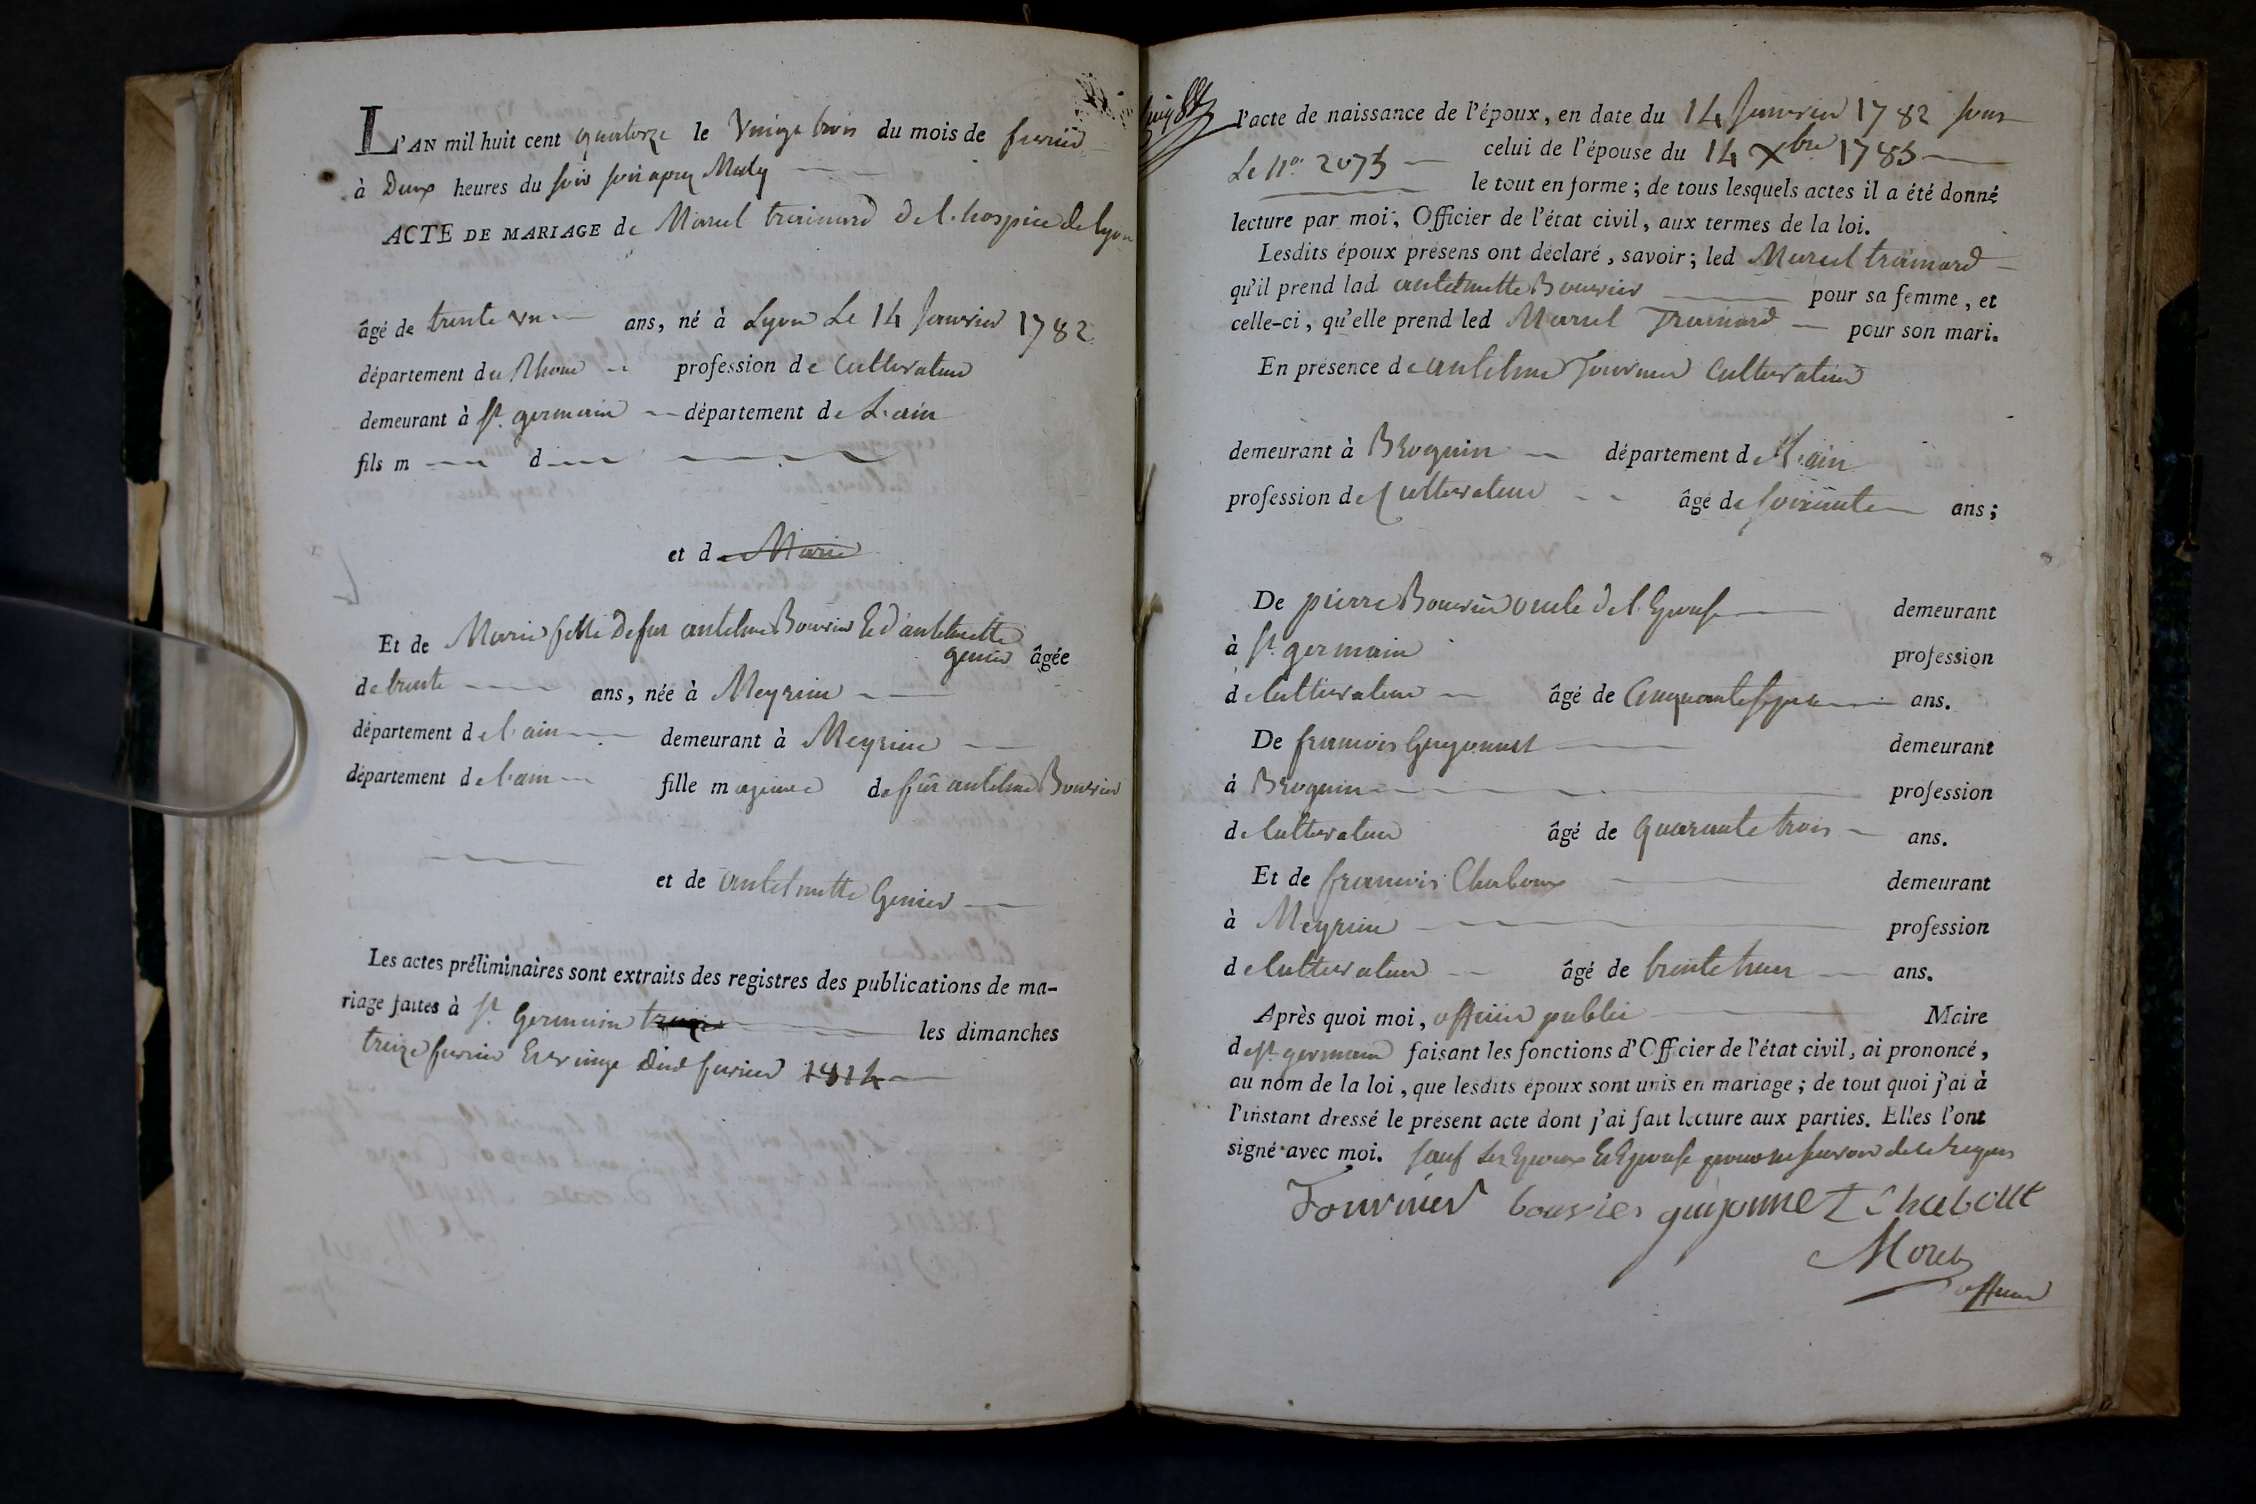 L'AN mil huit cent quatorze le vingt trois du mois de fevrier
à Deux heures du soir apres
ACTE DE MARIAGE de Marcel trainard de l'hospice de lyon
âgé de trente un ans, né à Lyon Le 14 Janvier 1782
département du Rhone profession de Cultivateur
demeurant à St. germain département de L'ain
fils m d
et de Marie
Et de Marie fille De feu antelme Bouvier Et d'antelmette
genier âgée
de trente ans, née à Meyrieu
département de l'ain demeurant à Meyrieu
département de l'ain fille m ageure de feu antelme Bouvier
et de antelmette Genier
Les actes préliminaires sont extraits des registres des publications de ma-
riage faites à St. Germain treize les dimanches
treize fevrier Et vingt fevrier 1814
l'acte de naissance de l'époux, en date du 14 Janvier 1782 sous
Le No. 2073 celui de l'épouse du 14 Xbre 1783
le tout en forme ; de tous lesquels actes il a été donné
lecture par moi, Officier de l'état civil, aux termes de la loi.
Lesdits époux présens ont déclaré, savoir ; led Marcel trainard
qu'il prend lad antelmette Bouvier pour sa femme, et
celle-ci, qu'elle prend led Marcel Trainard pour son mari.
En présence de antelme fournier Cultivateur
demeurant à Brognin département de L'ain
profession de Cultivateur âgé de soixante ans ;
De pierre Bouvier oncle de l'Epouse demeurant
à St. germain profession
de Cultivateur âgé de Cinquante sept ans.
De francois Guyonnet demeurant
à Brognin profession
de Cultivateur âgé de quarante trois ans.
Et de francois Chaboux demeurant
à Meyrieu profession
de Cultivateur âgé de trente ans.
Après quoi moi, officier public Maire
de St. germain faisant les fonctions d'Officier de l'état civil, ai prononcé,
au nom de la loi, que lesdits époux sont unis en mariage ; de tout quoi j'ai à
l'instant dressé le présent acte dont j'ai fait lecture aux parties. Elles l'ont
signé avec moi. sauf Les Epoux Et Epouse pour ne savoir de ce requis
Fournier bouvier guyonnet Chaboux
Moret
officier